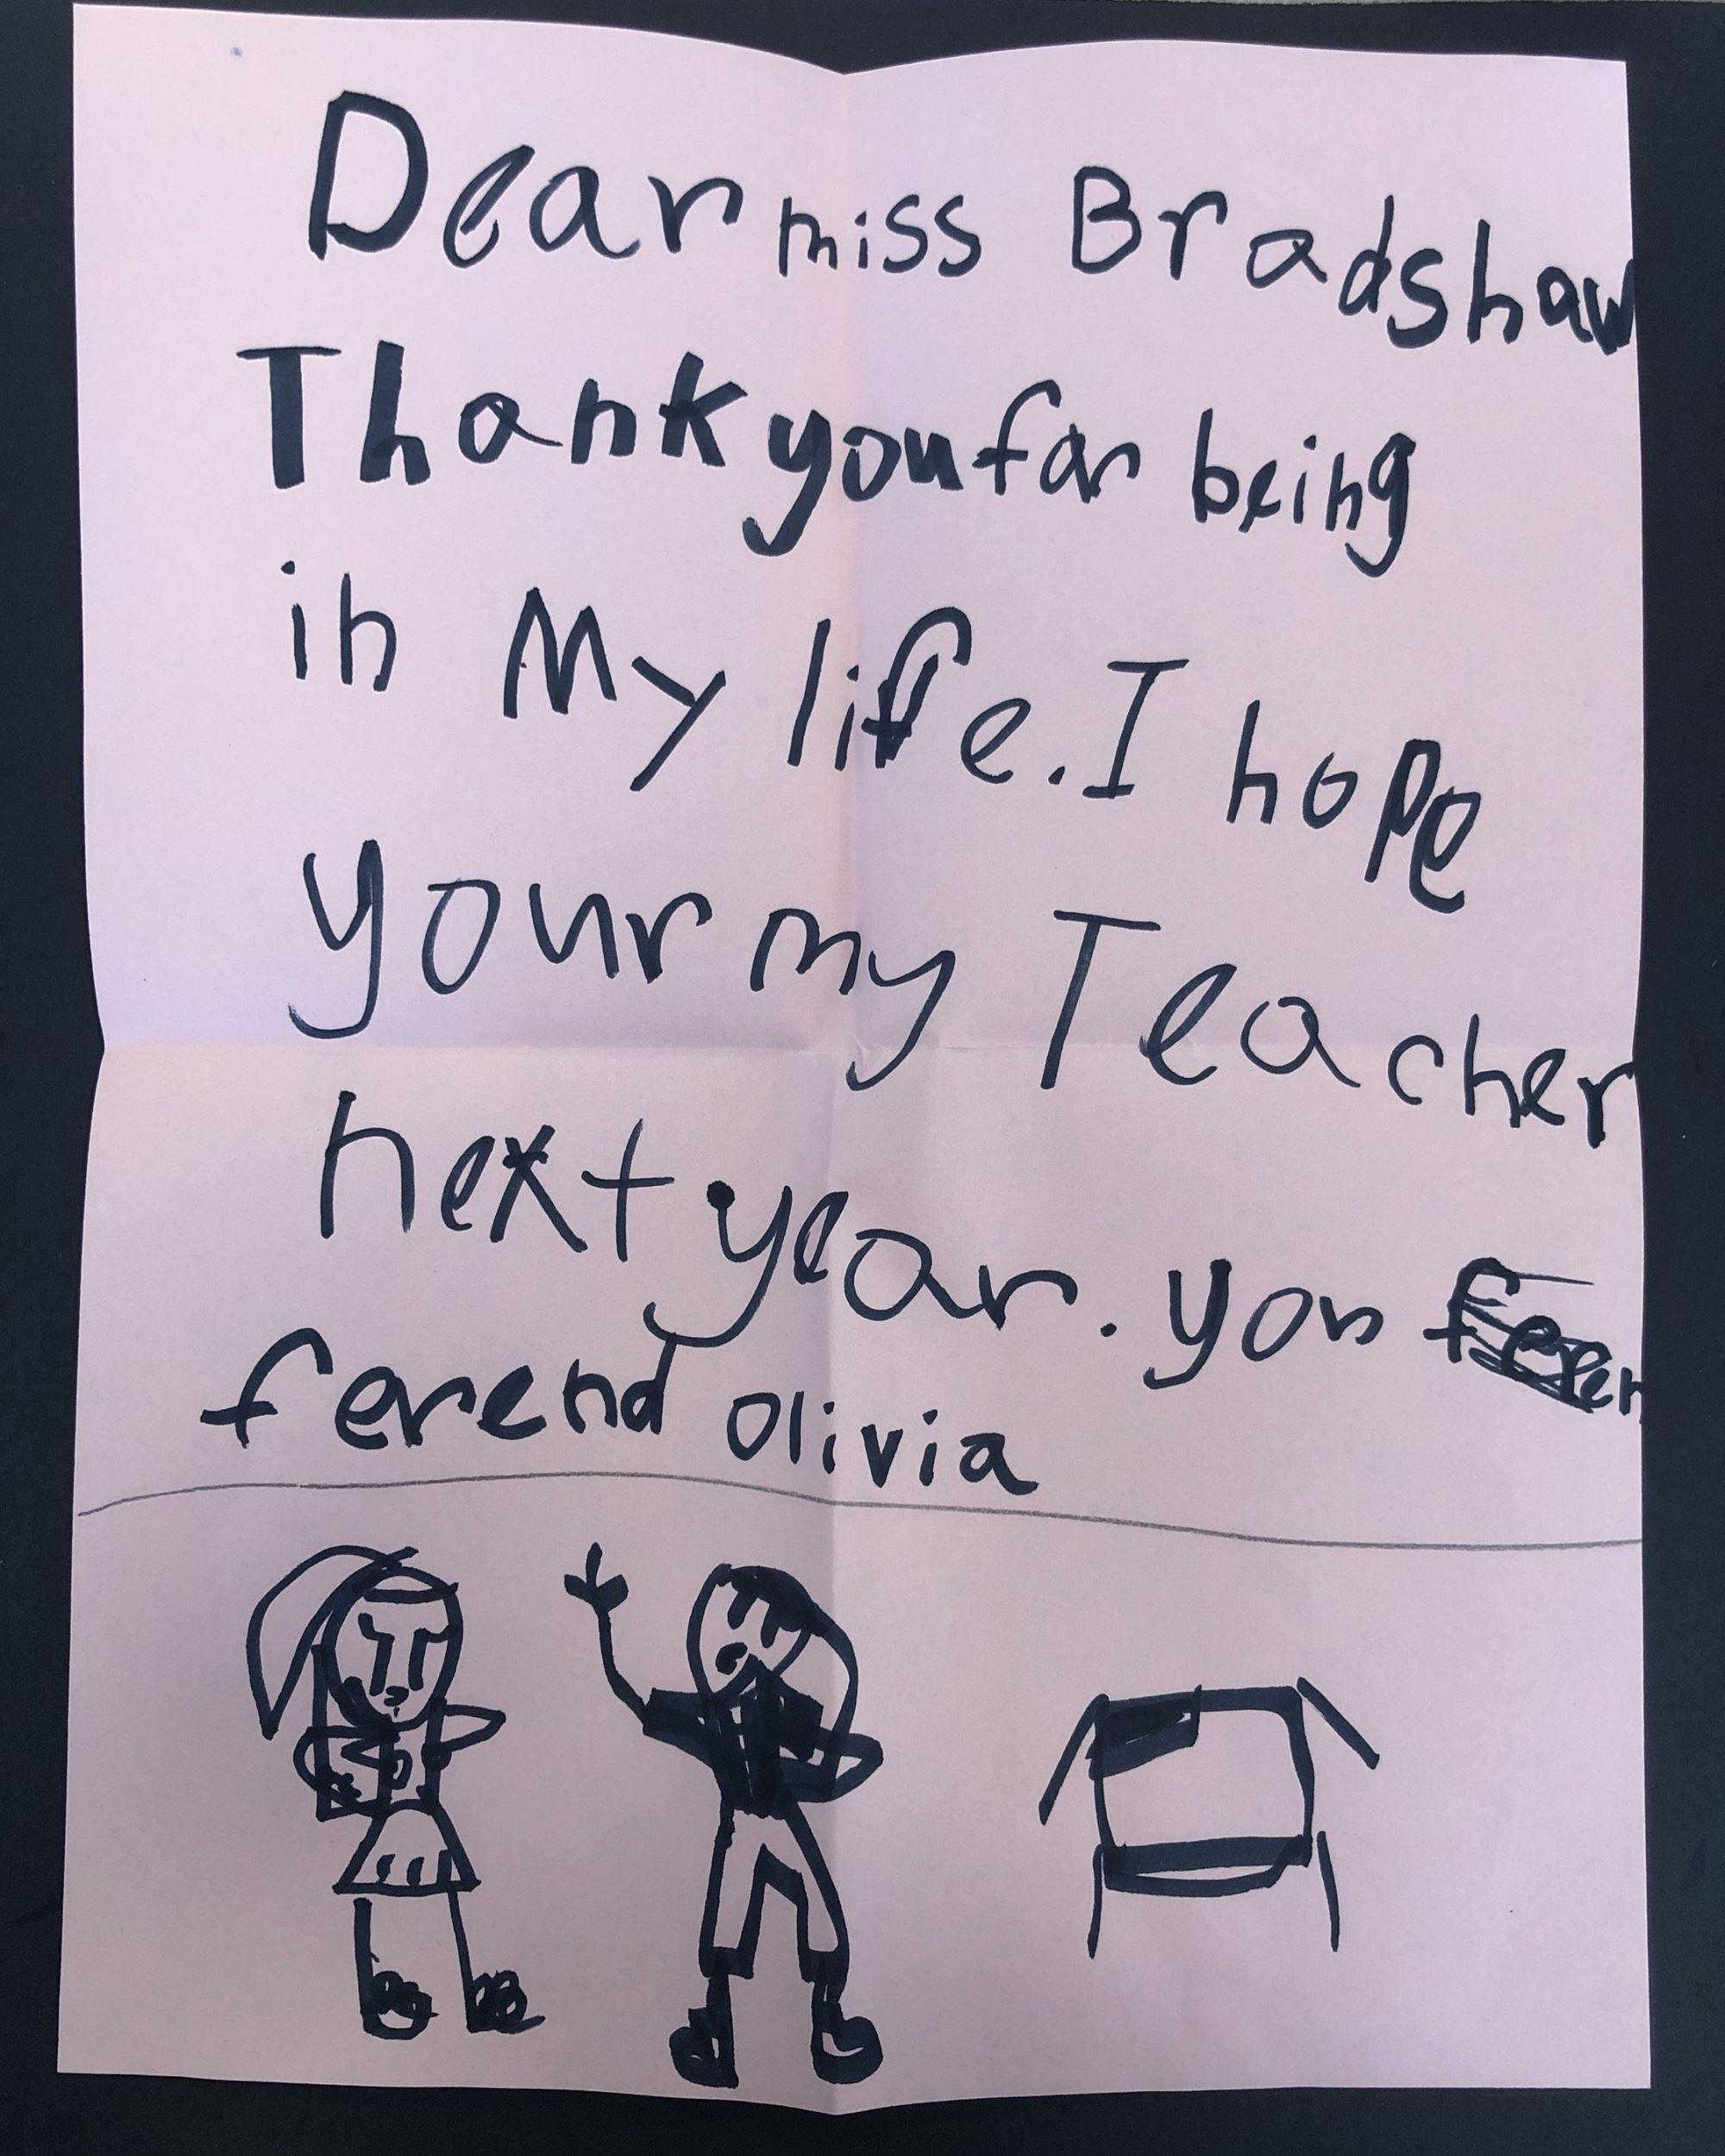 Dear miss Bradshaw
Thank you for being
in My life. I hope
your my Teacher
next year. you
ferend olivia